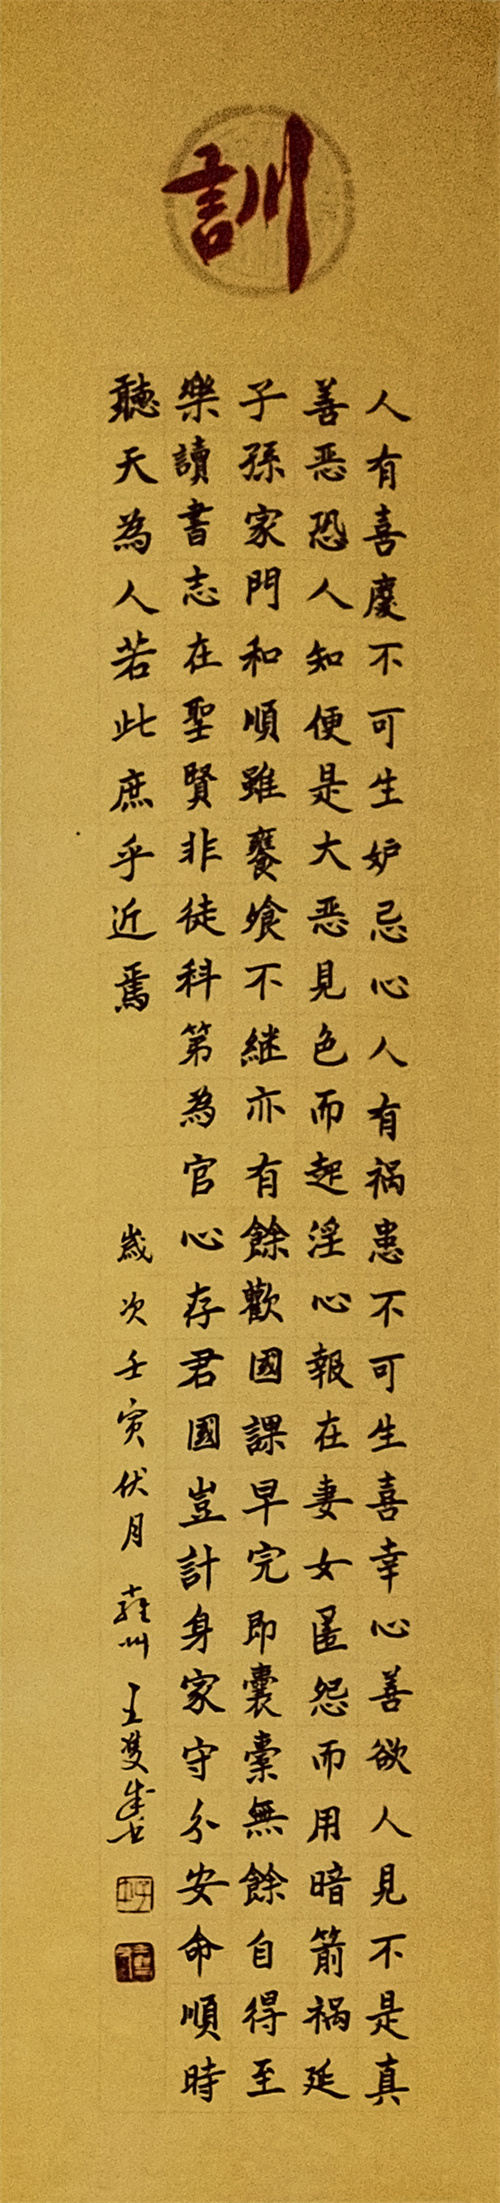 訓
人有喜慶不可生妒忌心人有祸患不可生喜幸心善欲人見不是真
善恶恐人知便是大恶見色而起淫心報在妻女匿怨而用暗箭祸延
子孫家門和順雖饔飧不継亦有餘歡國課早完即囊橐無餘自得至
樂讀書志在聖賢非徒科第為官心存君國豈計身家守分安命順時
聽天為人若此庶乎近焉
歲次壬寅伏月雍州王雙